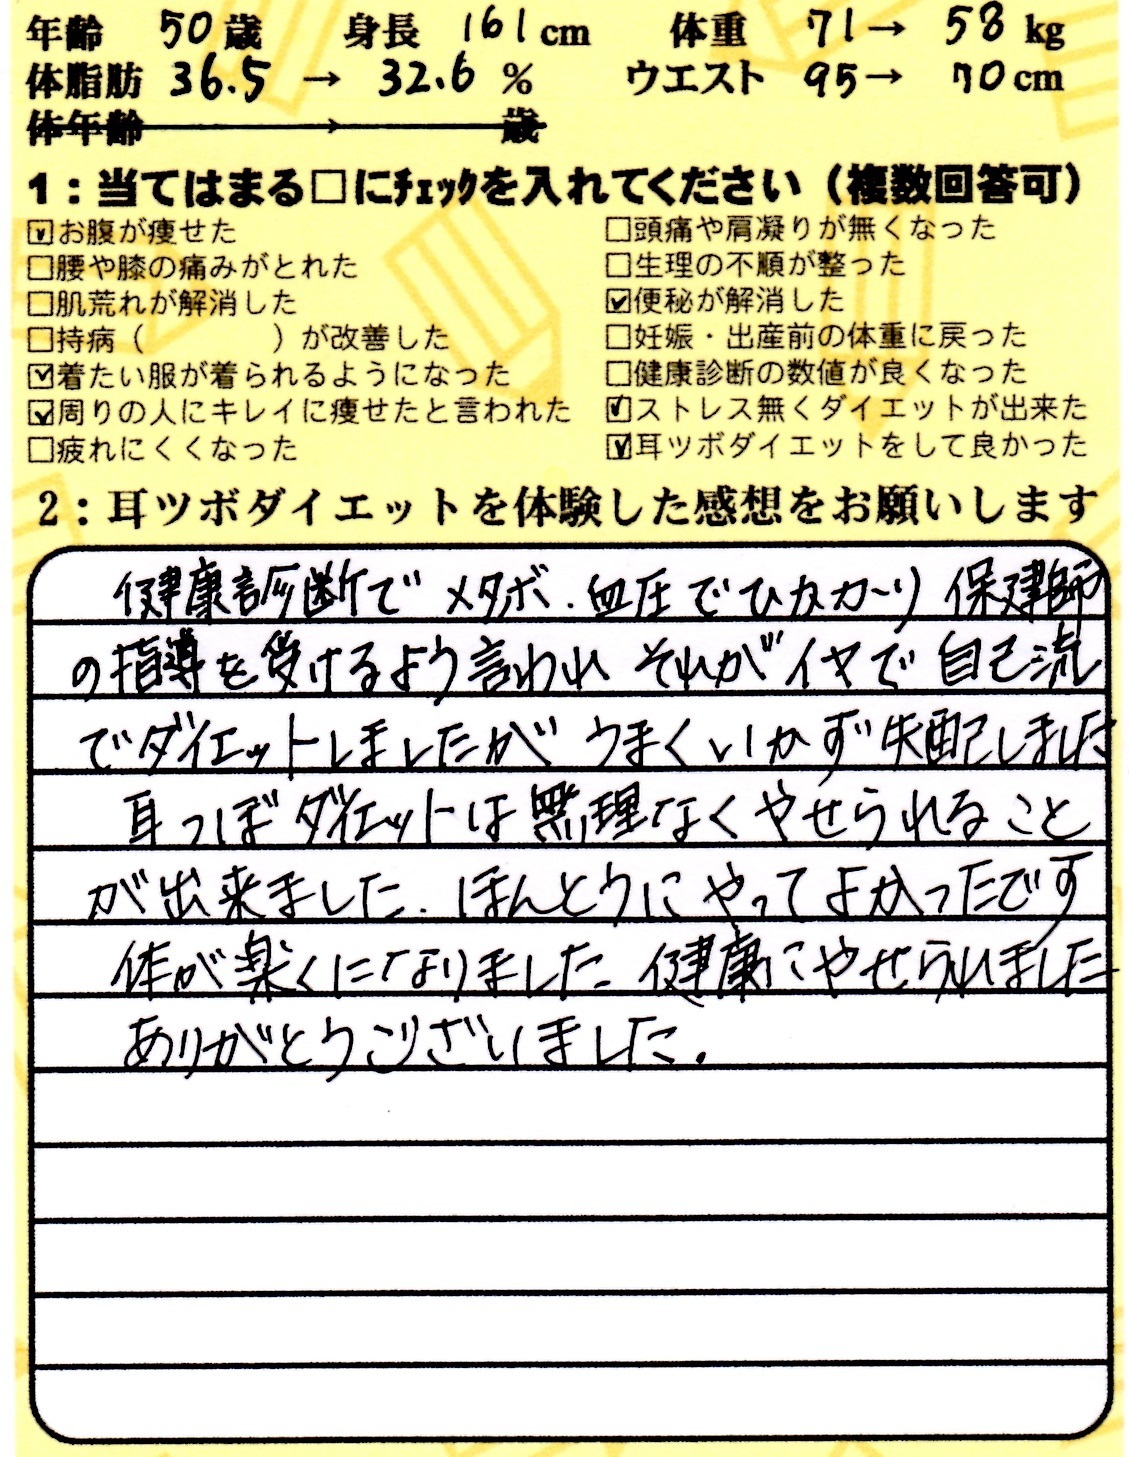 年齢 50歳 身長 161cm 体重 71→ 58 kg
体脂肪 36.5 → 32.6 % ウエスト 95→ 70cm
体年齢 → 歳
1：当てはまる□にﾁｪｯｸを入れてください（複数回答可）
☑お腹が痩せた □頭痛や肩凝りが無くなった
□腰や膝の痛みがとれた □生理の不順が整った
□肌荒れが解消した ☑便秘が解消した
□持病（ ）が改善した □妊娠・出産前の体重に戻った
☑着たい服が着られるようになった □健康診断の数値が良くなった
☑周りの人にキレイに痩せたと言われた ☑ストレス無くダイエットが出来た
□疲れにくくなった ☑耳ツボダイエットをして良かった
2：耳ツボダイエットを体験した感想をお願いします
健康診断で メタボ.血圧でひっかかり 保健師
の指導を受けるよう言われ それがイヤで 自己流
でダイエットしましたが うまくいかず 失敗しました
耳つぼダイエットは無理なくやせられること
が出来ました. ほんとうにやってよかったです
体が楽くになりました 健康にやせられました
ありがとうございました.